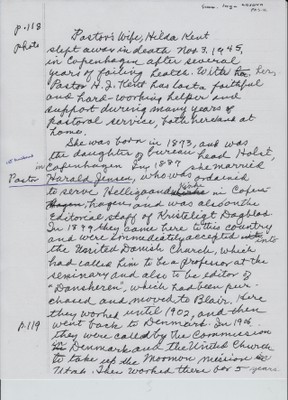 p.118
photo
Pastor's Wife, Hilda Kent
slept away in death Nov. 3, 1945,
in Copenhagen after several
years of failing health. With her,
Pastor H. J. Kent has lost a faithful
and hard-working helper and
support during many years of
pastoral service, both here and at
home.
She was born in 1873, and was
the daughter of bureau head Holst,
in Copenhagen. In 1897 she married
Pastor Harald Jensen, who was ordained
to serve Helligaands in Copen-
hagen, and was also on the
Editorial staff of Kristeligt Dagblad
In 1899 they came here to this country
and were immediately accepted into
the United Danish Church, which
had called him to be a professor at the
seminary and also to be editor of
"Danskeren", which had been pur-
chased and moved to Blair. Here
they worked until 1902, and then
went back to Denmark. In 1906
p.119
they were called by the Commission
in Denmark and the United Church
to take up the Mormon mission in
Utah. They worked there for 5 years